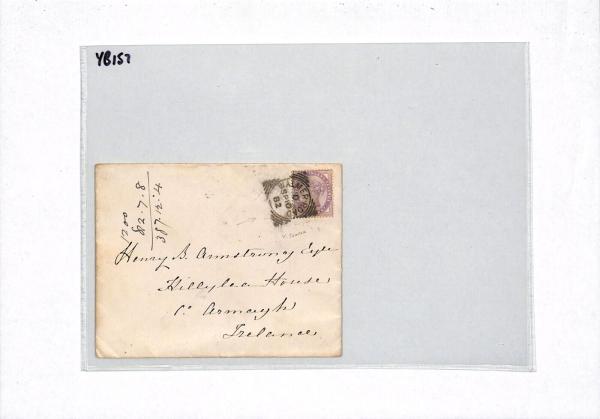 YB157
1200
82.7.8
387.12.4
Henry B. Armstrong Esqre
Hillylea House
Co Armagh
Ireland